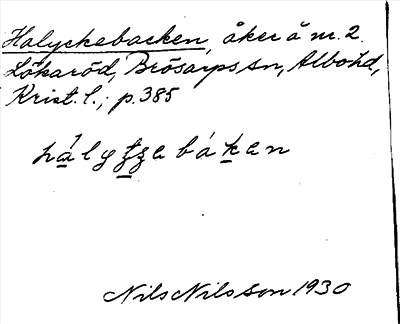 Halyckebacken, åker å nr. 2
Lökaröd, Brösarps sn, Albo hd,
Krist. l.; p. 385
Nils Nilsson 1930